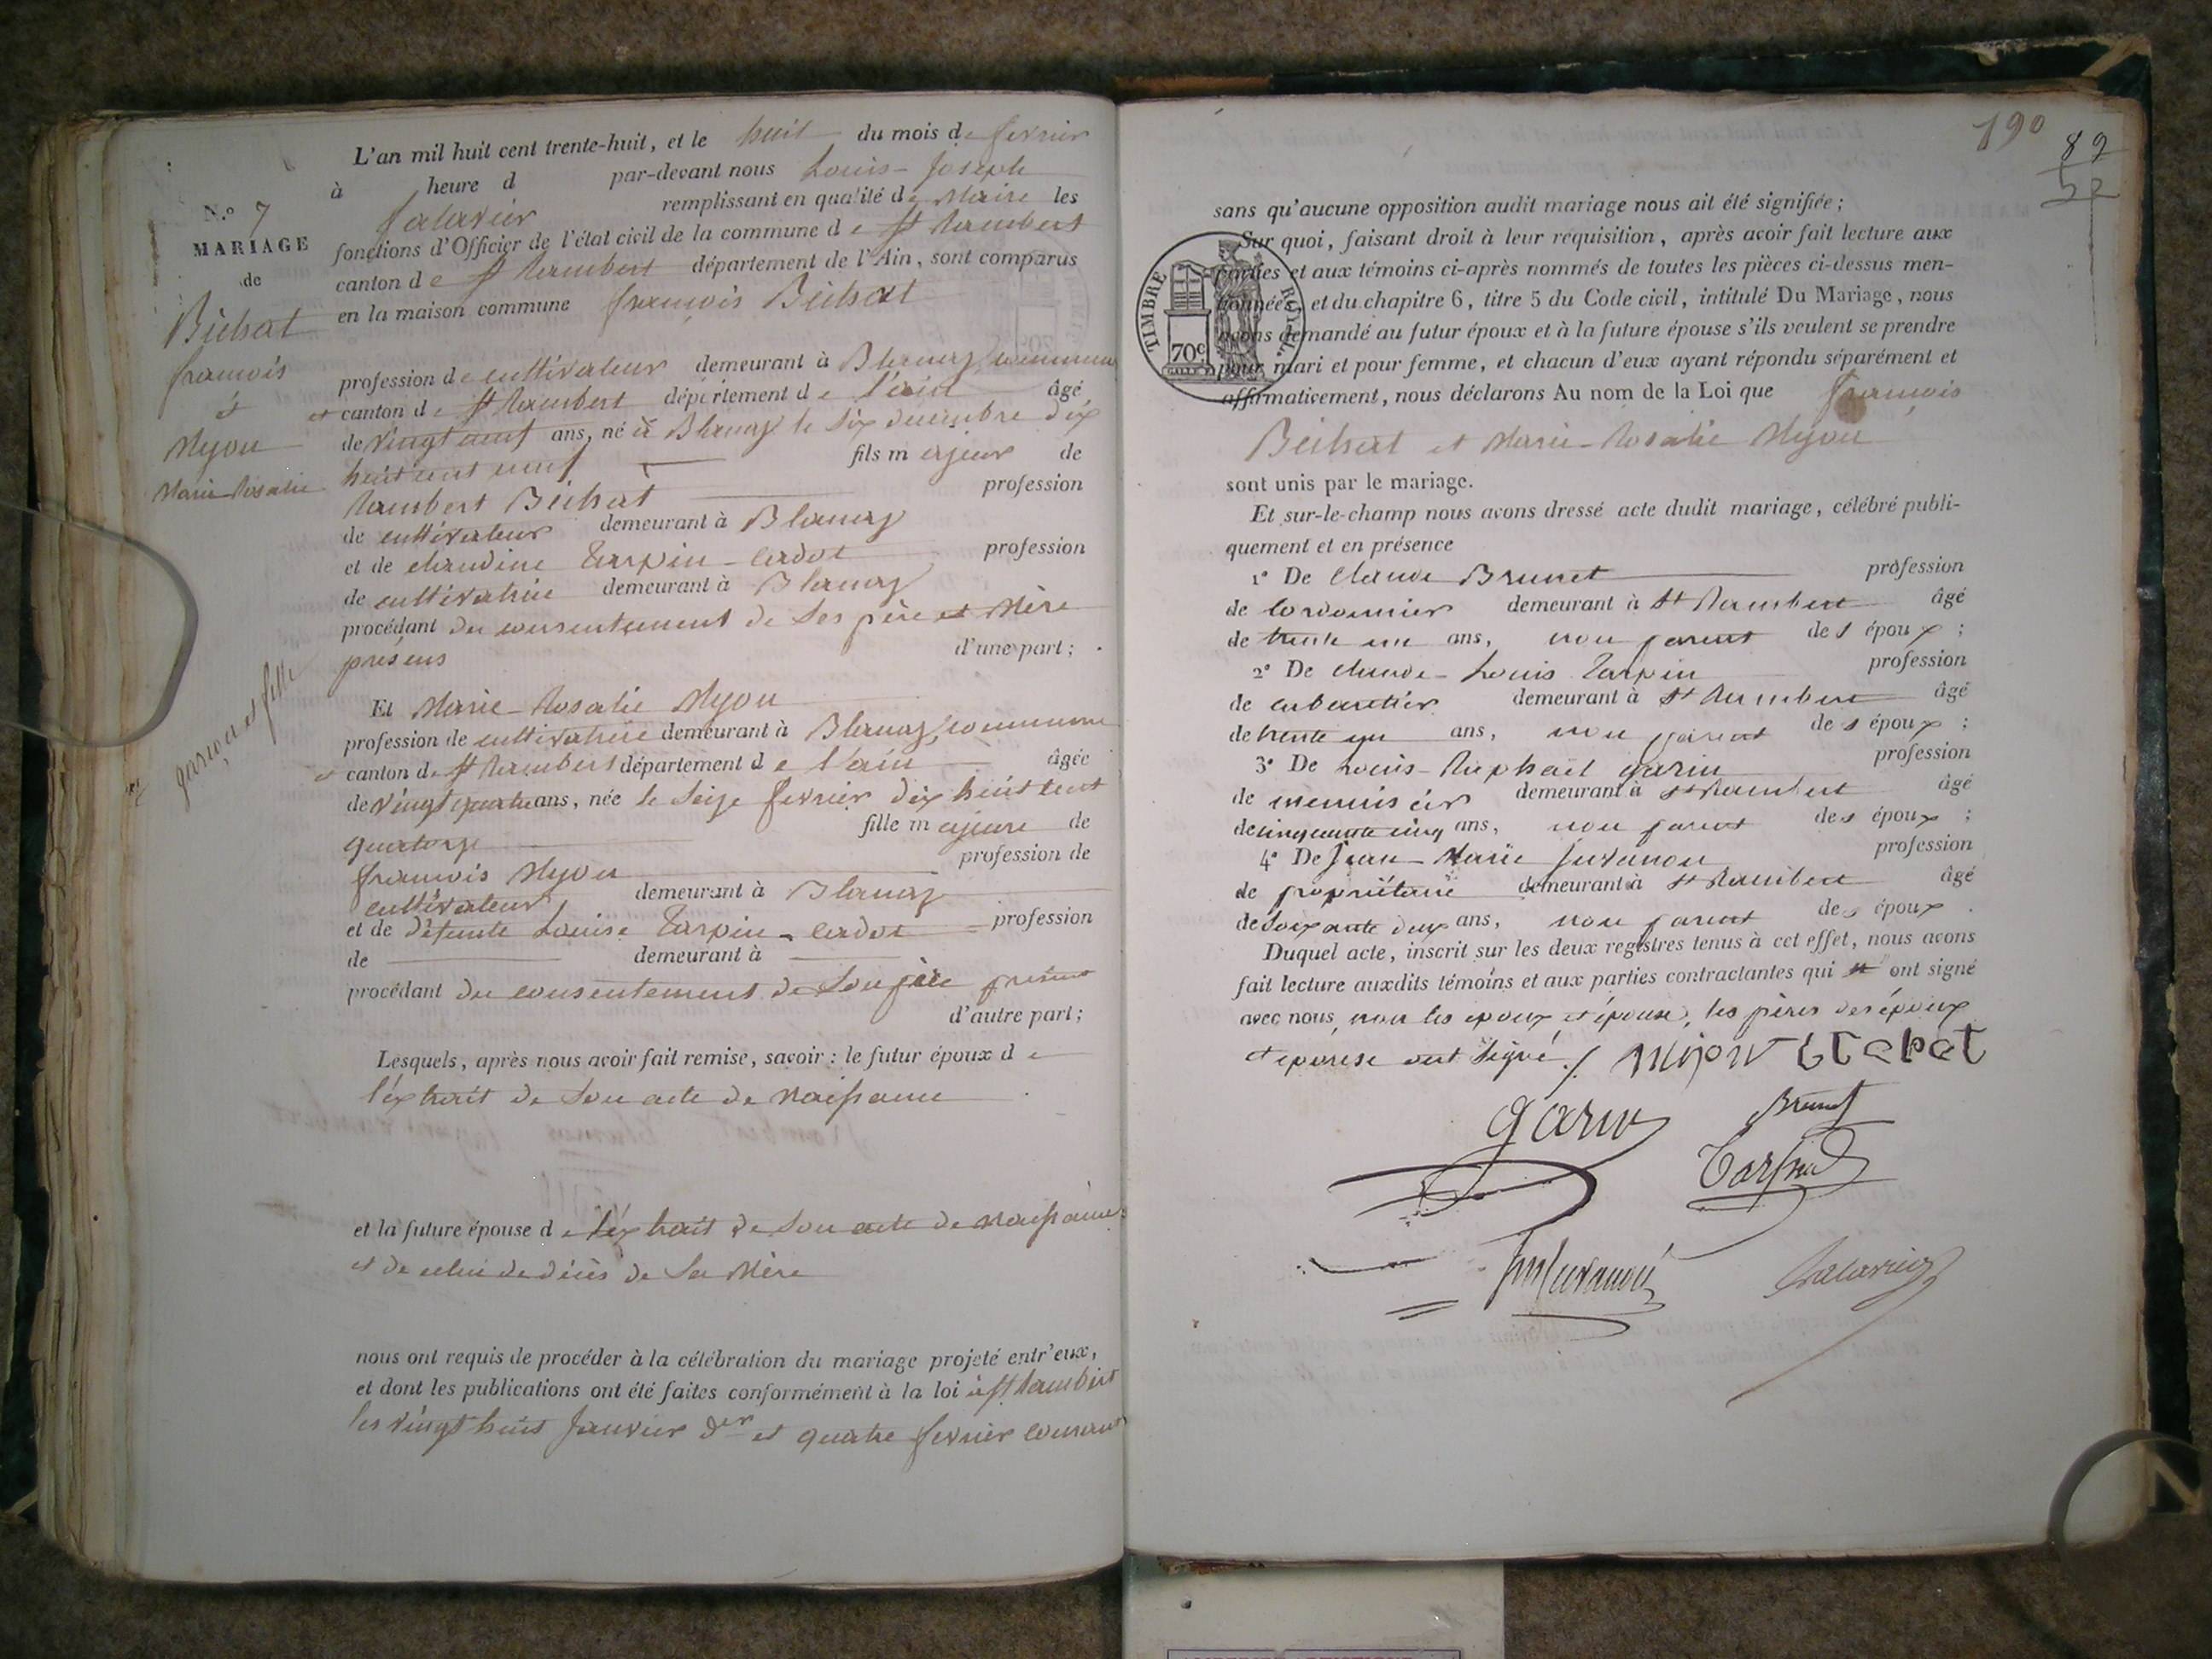 N.° 7
MARIAGE
de
Bichat
françois
et
Myon
Marie Rosalie
garçon et fille
L'an mil huit cent trente-huit, et le huit du mois de fevrier
à heure d par-devant nous Louis-Joseph
falavier remplissant en qualité de Maire les
fonctions d'Officier de l'état civil de la commune de St Rambert
canton de St Rambert département de l'Ain, sont comparus
en la maison commune françois Bichat
profession de cultivateur demeurant à Blanaz, commune
et canton de St Rambert département de l'ain âgé
de vingt neuf ans, né à Blanaz le six decembre dix
huit cent neuf fils majeur de
Rambert Bichat profession
de cultivateur demeurant à Blanaz
et de claudine Tarpin-cadot profession
de cultivatrice demeurant à Blanaz
procédant du consentement de ses père et Mère
présens d'une part;
Et Marie-Rosalie Myon
profession de cultivatrice demeurant à Blanaz, commune
et canton de St Rambert département de l'ain âgée
de vingt quatre ans, née le seize fevrier dix huit cent
quatorze fille majeure de
françois Myon profession de
cultivateur demeurant à Blanaz
et de défunte Louise Tarpin-cadot profession
de demeurant à
procédant du consentement de son père présent
d'autre part;
Lesquels, après nous avoir fait remise, savoir : le futur époux de
l'éxtrait de son acte de naissance
et la future épouse de l'éxtrait de son acte de naissance
et de celui de décès de sa Mère
nous ont requis de procéder à la célébration du mariage projeté entr'eux,
et dont les publications ont été faites conformément à la loi à St Rambert
les vingt huit Janvier der et quatre fevrier courant
190
89
52
sans qu'aucune opposition audit mariage nous ait été signifiée;
Sur quoi, faisant droit à leur réquisition, après avoir fait lecture aux
parties et aux témoins ci-après nommés de toutes les pièces ci-dessus men-
tionnées, et du chapitre 6, titre 5 du Code civil, intitulé Du Mariage, nous
avons demandé au futur époux et à la future épouse s'ils veulent se prendre
pour mari et pour femme, et chacun d'eux ayant répondu séparément et
affirmativement, nous déclarons Au nom de la Loi que françois
TIMBRE ROYAL.
70c
Bichat et Marie-Rosalie Myon
sont unis par le mariage.
Et sur-le-champ nous avons dressé acte dudit mariage, célébré publi-
quement et en présence
1° De Claude Brunet profession
de Cordonnier demeurant à St Rambert âgé
de trente un ans, non parent des époux;
2° De claude-Louis Tarpin profession
de cabaretier demeurant à St Rambert âgé
de trente un ans, non parent des époux;
3° De Louis-Raphaël garin profession
de menuisier demeurant à St Rambert âgé
de cinquante cinq ans, non parent des époux;
4° De Jean-Marie Juvanon profession
de propriétaire demeurant à St Rambert âgé
de soixante deux ans, non parent des époux.
Duquel acte, inscrit sur les deux registres tenus à cet effet, nous avons
fait lecture auxdits témoins et aux parties contractantes qui ont signé
avec nous, non les epoux et épouse, les pères des époux
et épouse ont signé./.
garin
Brunet
Tarpin